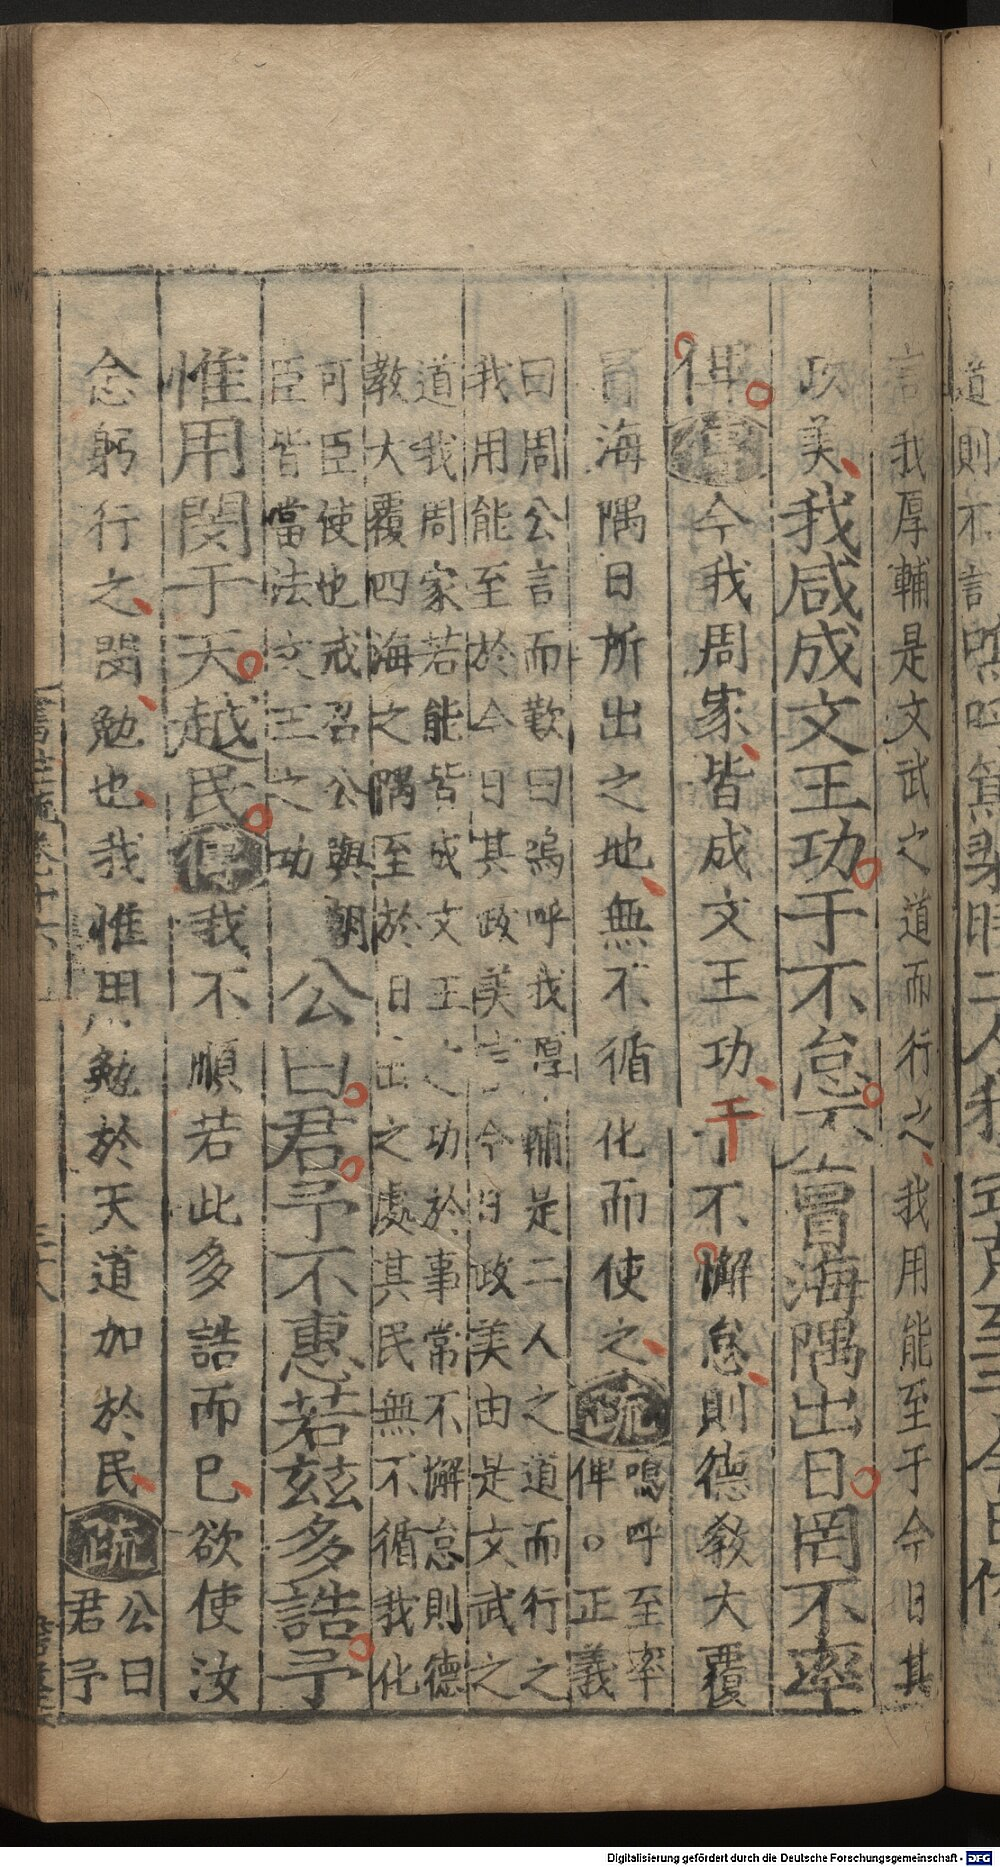 言我厚輔是文武之道而行之我用能至于今日其
政美我咸成文王功于不怠丕冒海隅出日罔不率
俾傳今我周家皆成文王功于不懈怠則德教大覆
冒海隅日所出之地無不循化而使之疏嗚呼至率
俾。正義
曰周公言而歎曰嗚呼我厚輔是二人之道而行之
我用能至於今日其政美言今日政美由是文武之
道我周家若能皆成文王之功於事常不懈怠則德
教大覆四海之隅至於日出之處其民無不循我化
可臣使也戒召公與朝
臣皆當法文王之功
公曰君予不惠若茲多誥予
惟用閔于天越民傳我不順若此多誥而已欲使汝
念躬行之閔勉也我惟用勉於天道加於民疏公曰
君予
道則不言
Digitalisierung gefördert durch die Deutsche Forschungsgemeinschaft - DFG